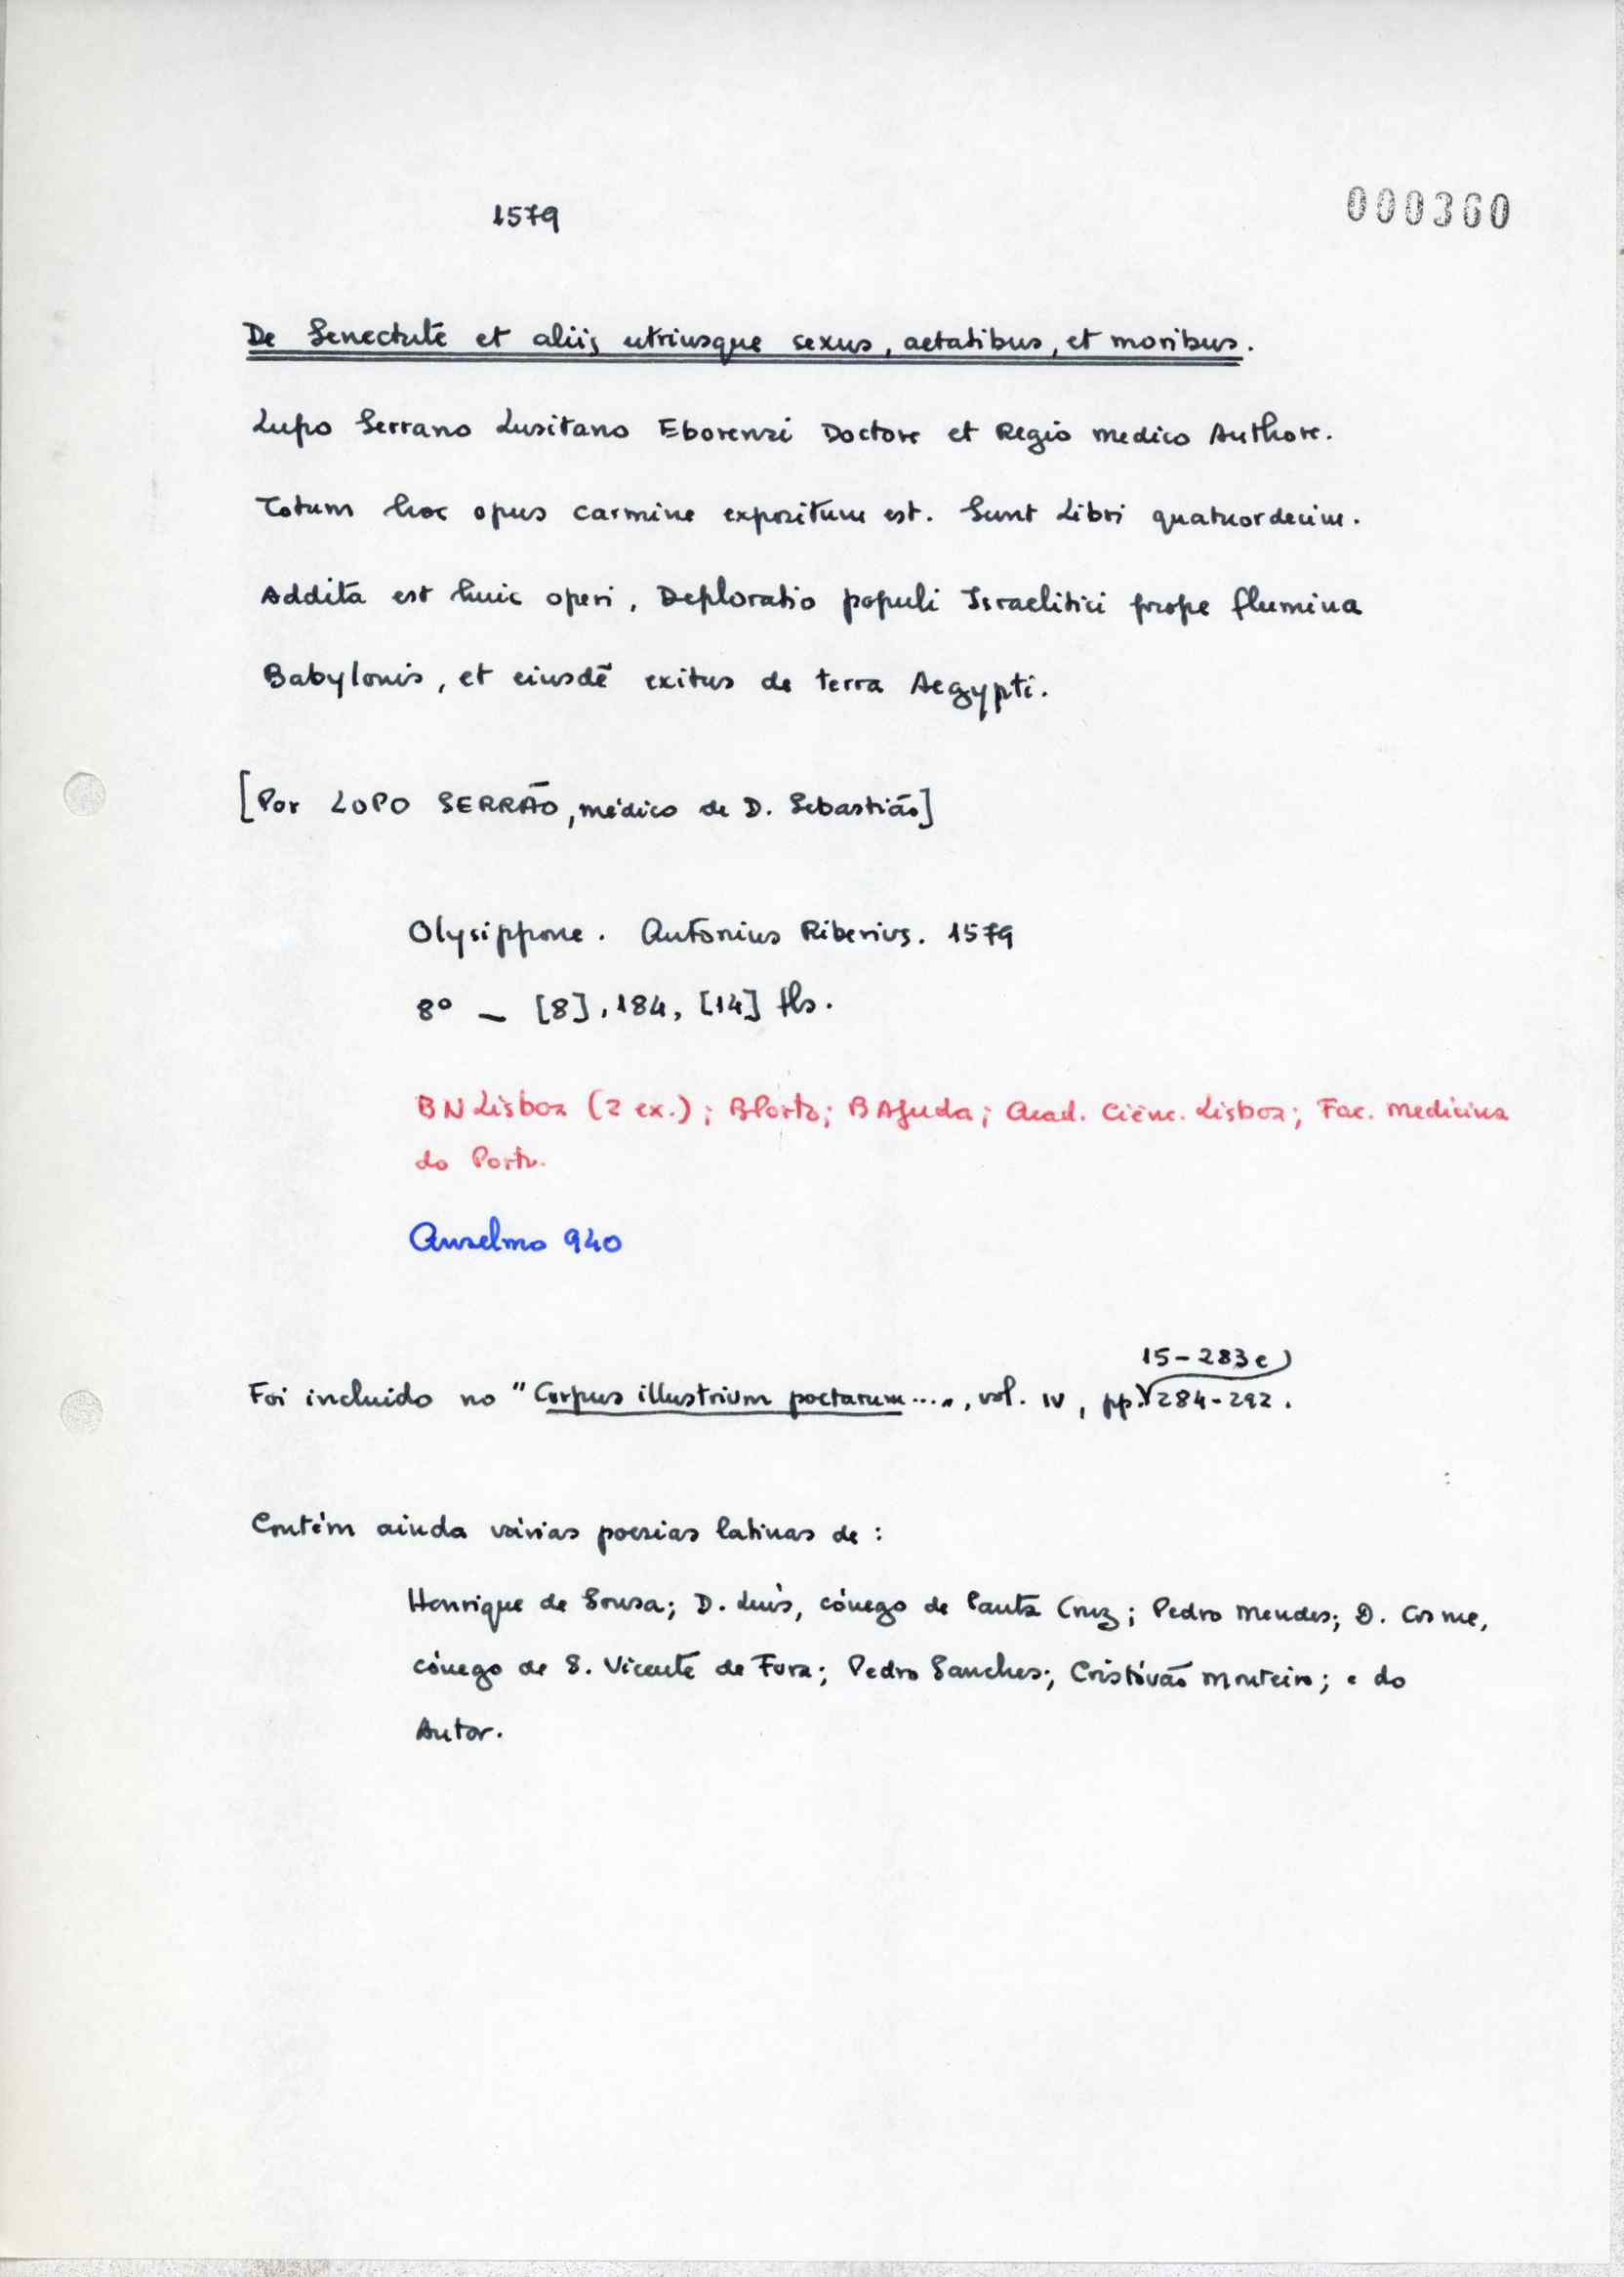 1579
000360
De Senectute et aliis utriusque sexus, aetatibus, et moribus.
Lupo Serrano Lusitano Eborensi Doctore et Regio medico Authore.
Totum hoc opus carmine expositum est. Sunt Libri quatuordecim.
Addita est huic operi, Deploratio populi Israelitici prope flumina
Babylonis, et eiusdē exitus de terra Aegypti.
[Por LOPO SERRÃO, médico de D. Sebastião]
Olysippone. Antonius Riberius. 1579
8º — [8], 184, [14] fls.
BN Lisboa (2 ex.); BPorto; B Ajuda; Acad. Ciênc. Lisboa; Fac. Medicina
do Porto.
Anselmo 940
15-283 e
Foi incluido no "Corpus illustrium poetarum....", vol. IV, pp. 284-292.
Contém ainda várias poesias latinas de:
Henrique de Sousa; D. Luís, cónego de Santa Cruz; Pedro Mendes; D. Cosme,
cónego de S. Vicente de Fora; Pedro Sanches; Cristóvão Monteiro; e do
Autor.